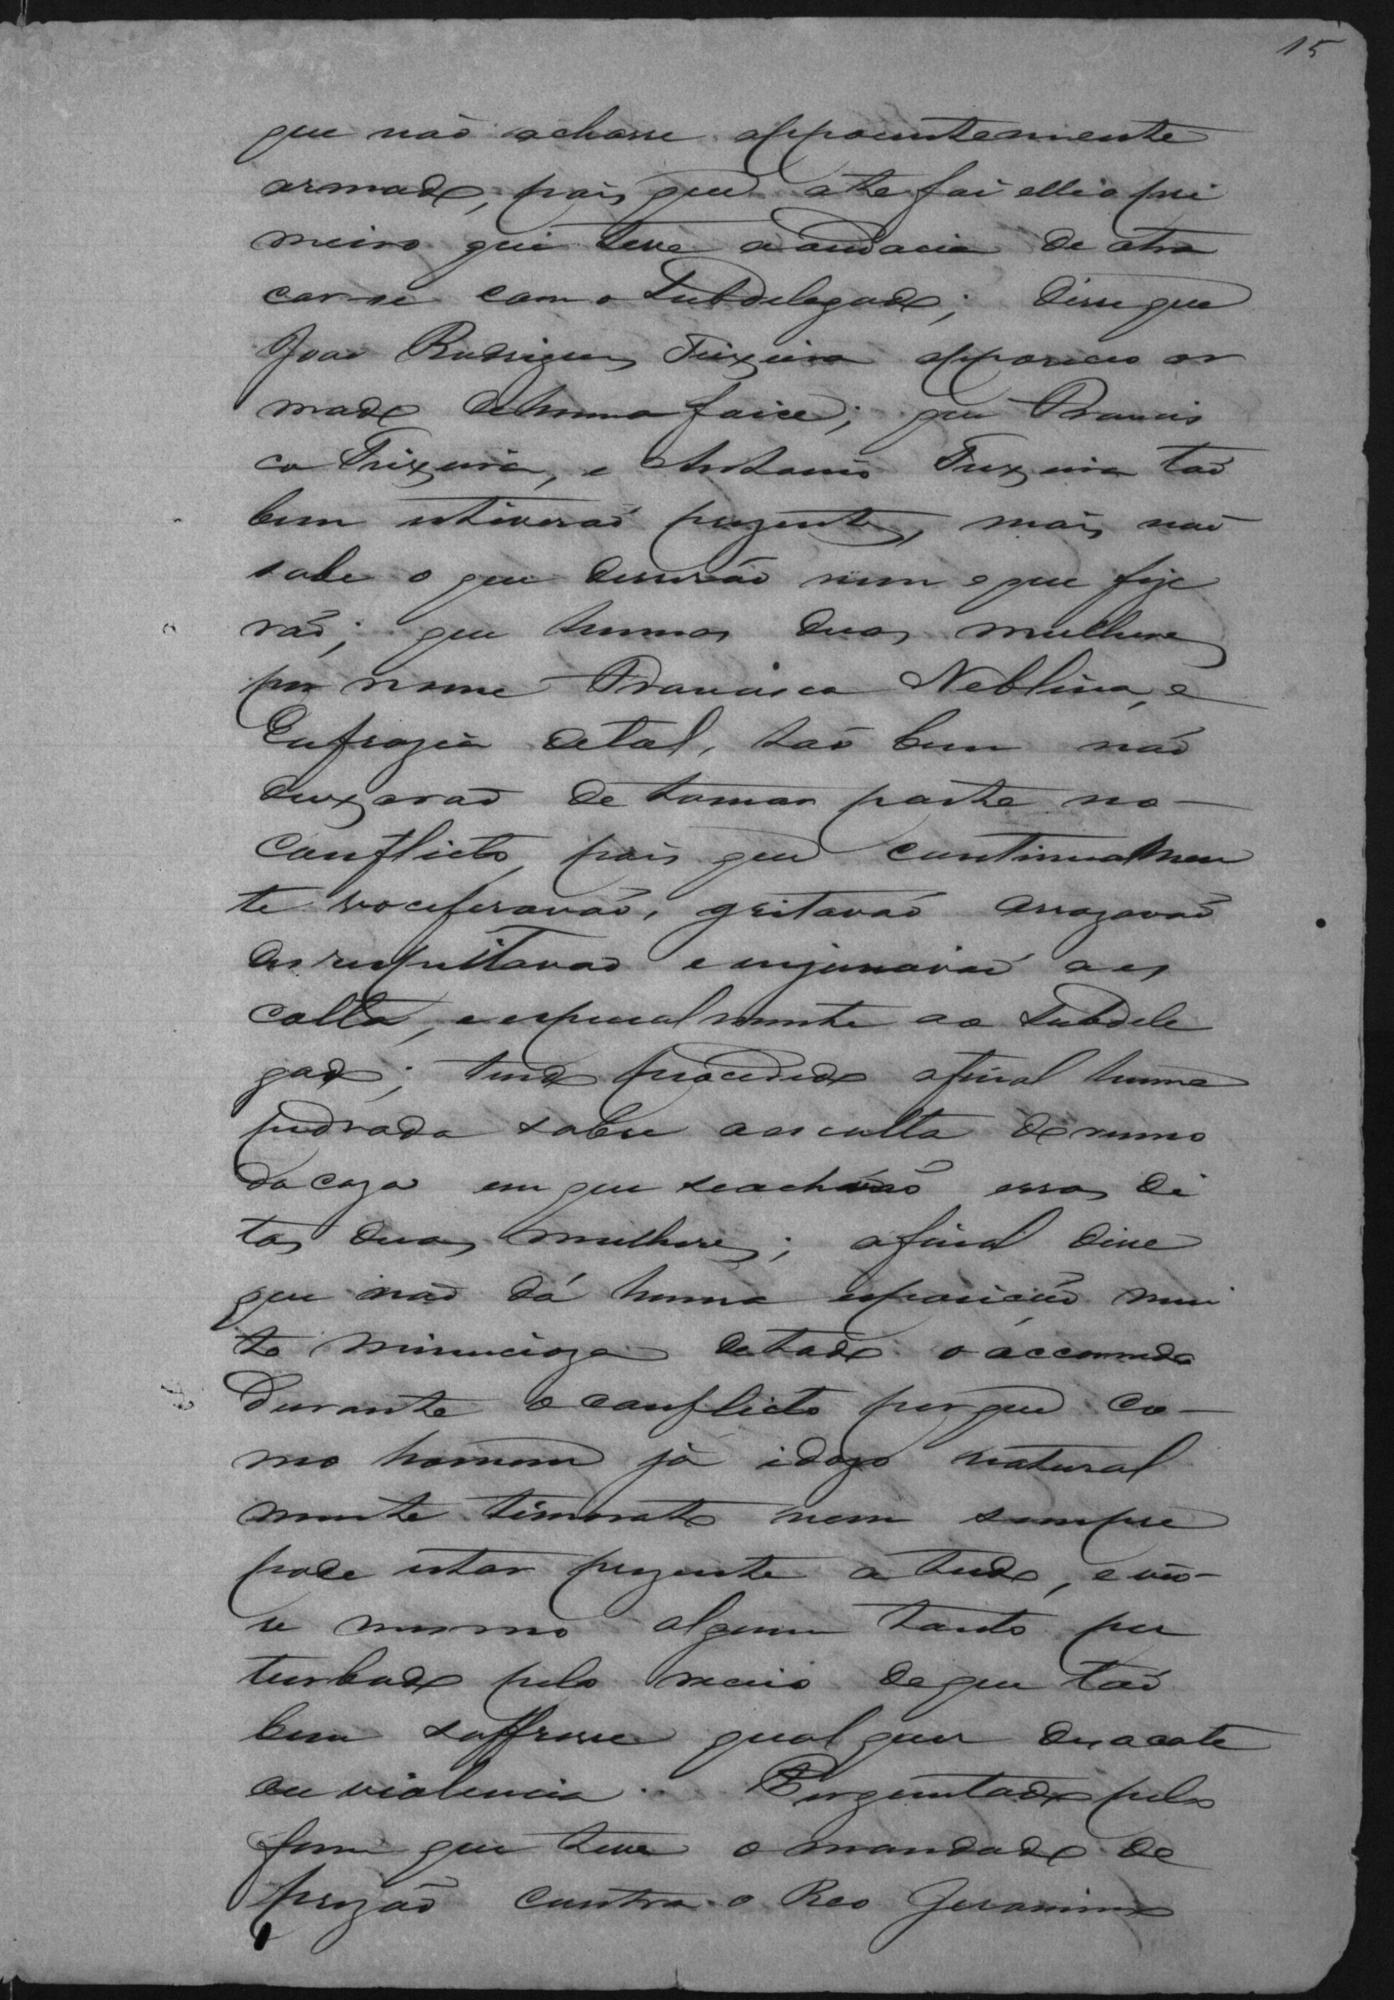 15
que não achasse apparentemente
armado, pois que athe foi elle o pri
meiro que teve a audacia de atra
car-se com o Subdelegado; disse que
João Rodrigues Teixeira appareceo ar
mado de huma foice; que Francis
co Teixeira, e Antonio Teixeira tão
bem estiverão prezentes, mais não
sabe o que disserão nem o que fize
rão; que humas duas mulheres
por nome Francisca Neblina, e
Eufrazia de tal, tão bem não
deixarão de tomar parte no
conflicto, pois que continuadamen
te vociferavão, gritavão
desrespeitavão e injuriavão a es
colta, e especialmente ao Subdele
gado; tendo procedido afinal huma
pedrada sobre a escolta de rumo
da caza em que se achavão essas di
tas duas mulheres; afinal disse
que não dá huma expozição mui
to minucioza de todo o accorrido
durante o conflicto porque co
mo homem já idozo natural
mente timorato nem sempre
pode estar prezente a tudo, e vio
se mesmo algum tanto per
turbado pelo receio de que tão
bem soffresse qualquer desacato
ou violencia. Perguntado pelo
fim que teve o mandado de
prizão contra o Reo Jeronimo